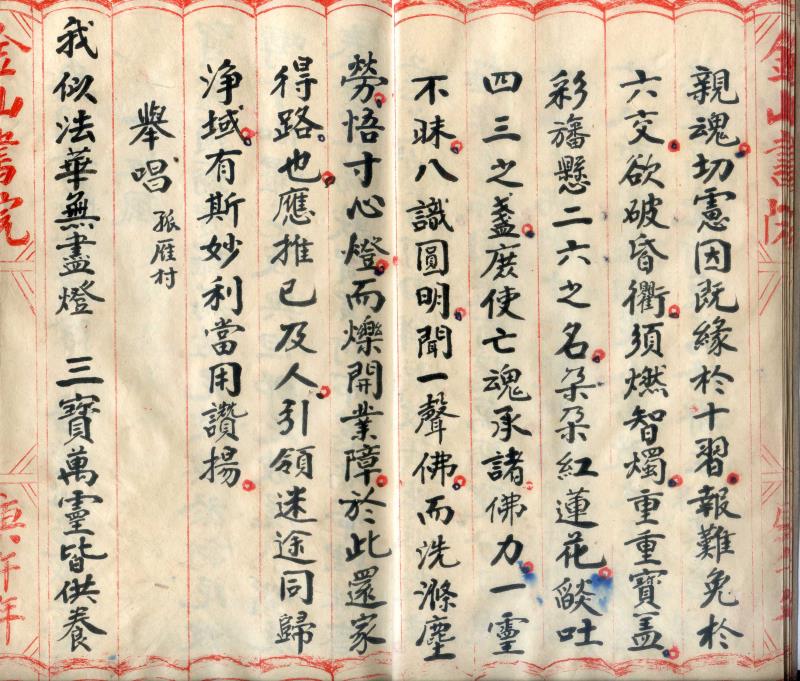 親魂切憲因既緣於十習報難免於
六交欲破昏衢須燃智燭重重寶蓋
彩旛懸二六之名朵朵紅蓮花燄吐
四三之盞庶使亡魂承諸佛力一靈
不昧八識圓明聞一聲佛而洗滌塵
勞悟寸心燈而爍開業障於此還家
得路也應推已及人引領迷途同歸
淨域有斯妙利當用讚揚
舉唱 孤雁村
我似法華無盡燈 三寶萬靈皆供養
金山書院
庚午年